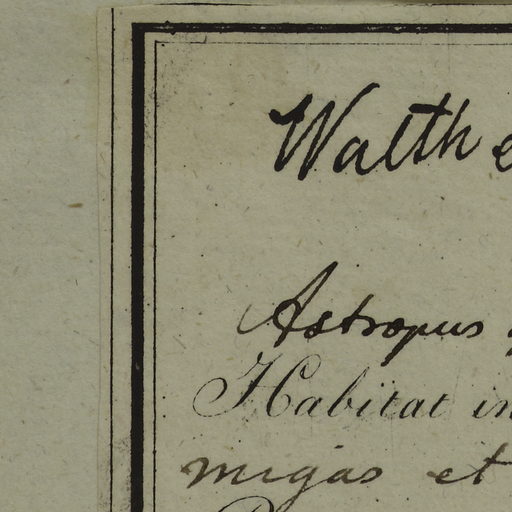 Walth
Astropus
Habitat in
migas et